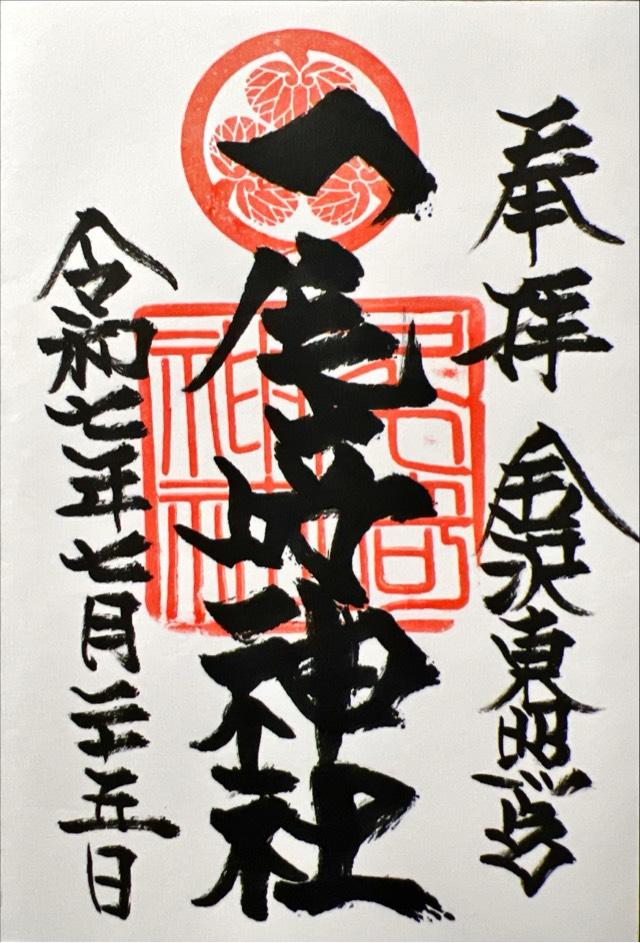 奉拝 金沢東照宮
尾崎神社
令和七年七月二十五日